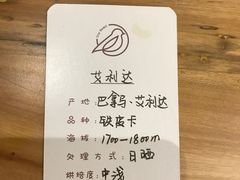 艾利达
产地：巴拿马·艾利达
品种：铁皮卡
海拔：1700-1800m
处理方式：日晒
烘焙度：中浅